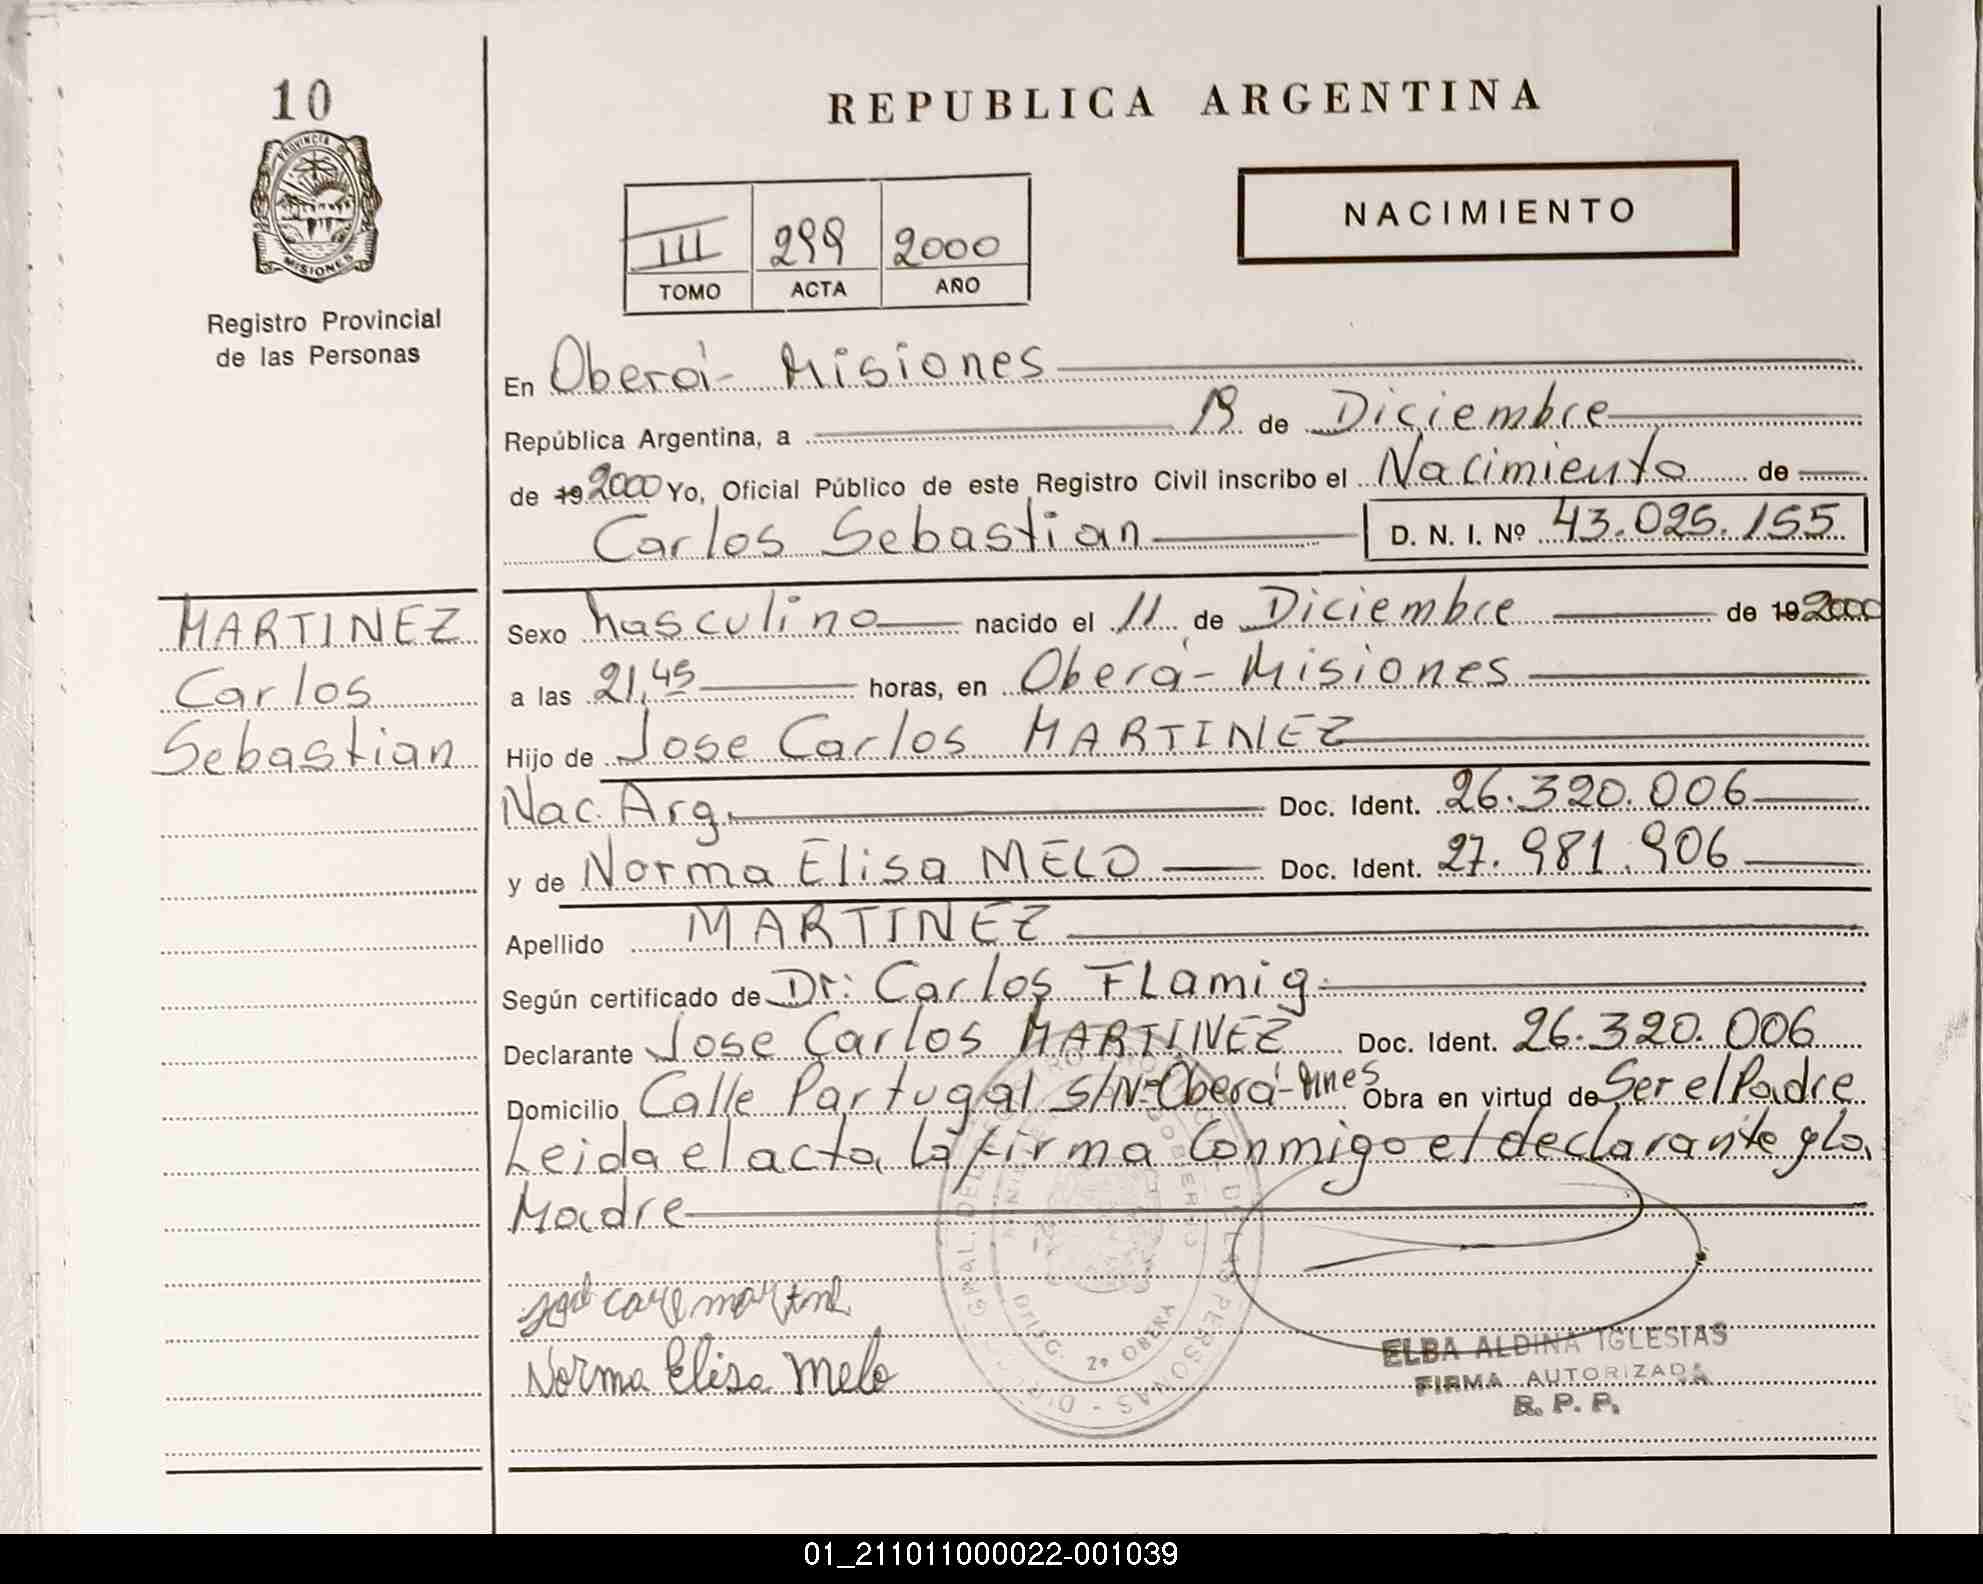 10
PROVINCIA DE
MISIONES
Registro Provincial
de las Personas
REPUBLICA ARGENTINA
III 299 2000
TOMO ACTA AÑO
NACIMIENTO
En Oberá - Misiones
República Argentina, a 19 de Diciembre
de 19 2000 Yo, Oficial Público de este Registro Civil inscribo el Nacimiento de
Carlos Sebastian D. N. I. Nº 43.025.155
MARTINEZ
Carlos
Sebastian
Sexo Masculino nacido el 11 de Diciembre de 19 2000
a las 21,45 horas, en Oberá - Misiones
Hijo de Jose Carlos MARTINEZ
Nac. Arg. Doc. Ident. 26.320.006
y de Norma Elisa MELO Doc. Ident. 27.981.906
Apellido MARTINEZ
Según certificado de Dr: Carlos FLamig.
Declarante Jose Carlos MARTINEZ Doc. Ident. 26.320.006
Domicilio Calle Partugal S/Nº Oberá - Mnes Obra en virtud de Ser el Padre
Leida el acta, la firma Conmigo el declarante y la
Madre
Norma Elisa Melo
ELBA ALDINA IGLESIAS
FIRMA AUTORIZADA
R. P. P.
01_211011000022-001039